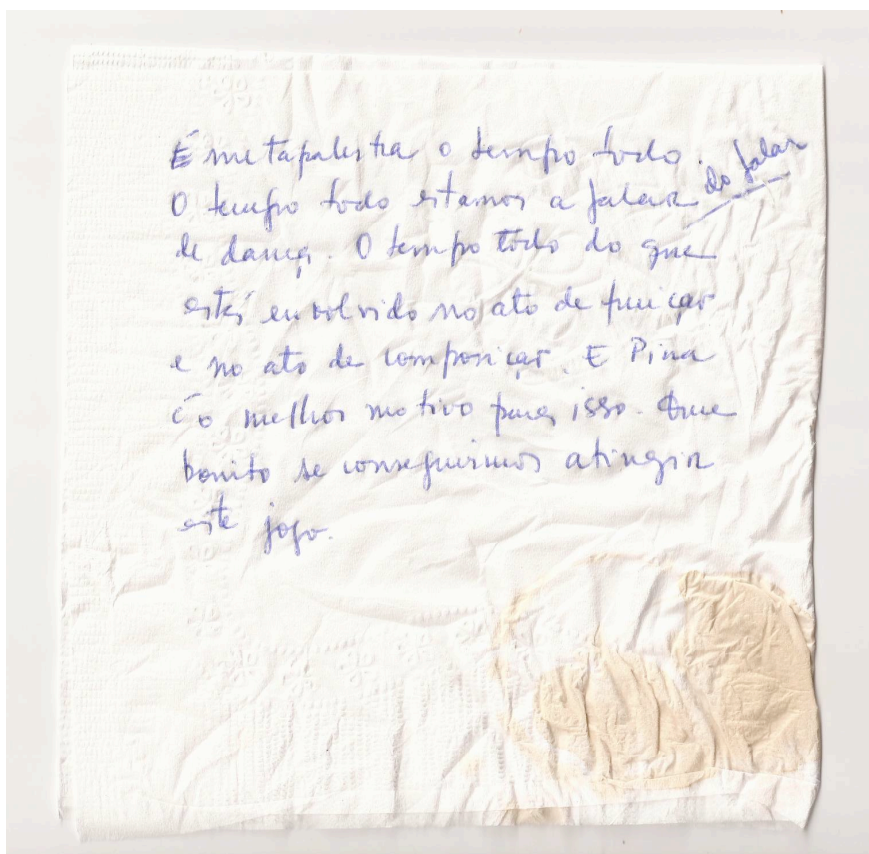 É metapalestra o tempo todo.
O tempo todo estamos a falar do falar
de dança. O tempo todo do que
está envolvido no ato de fruição
e no ato de composição. E Pina
é o melhor motivo para isso. Que
bonito se conseguirmos atingir
este jogo.